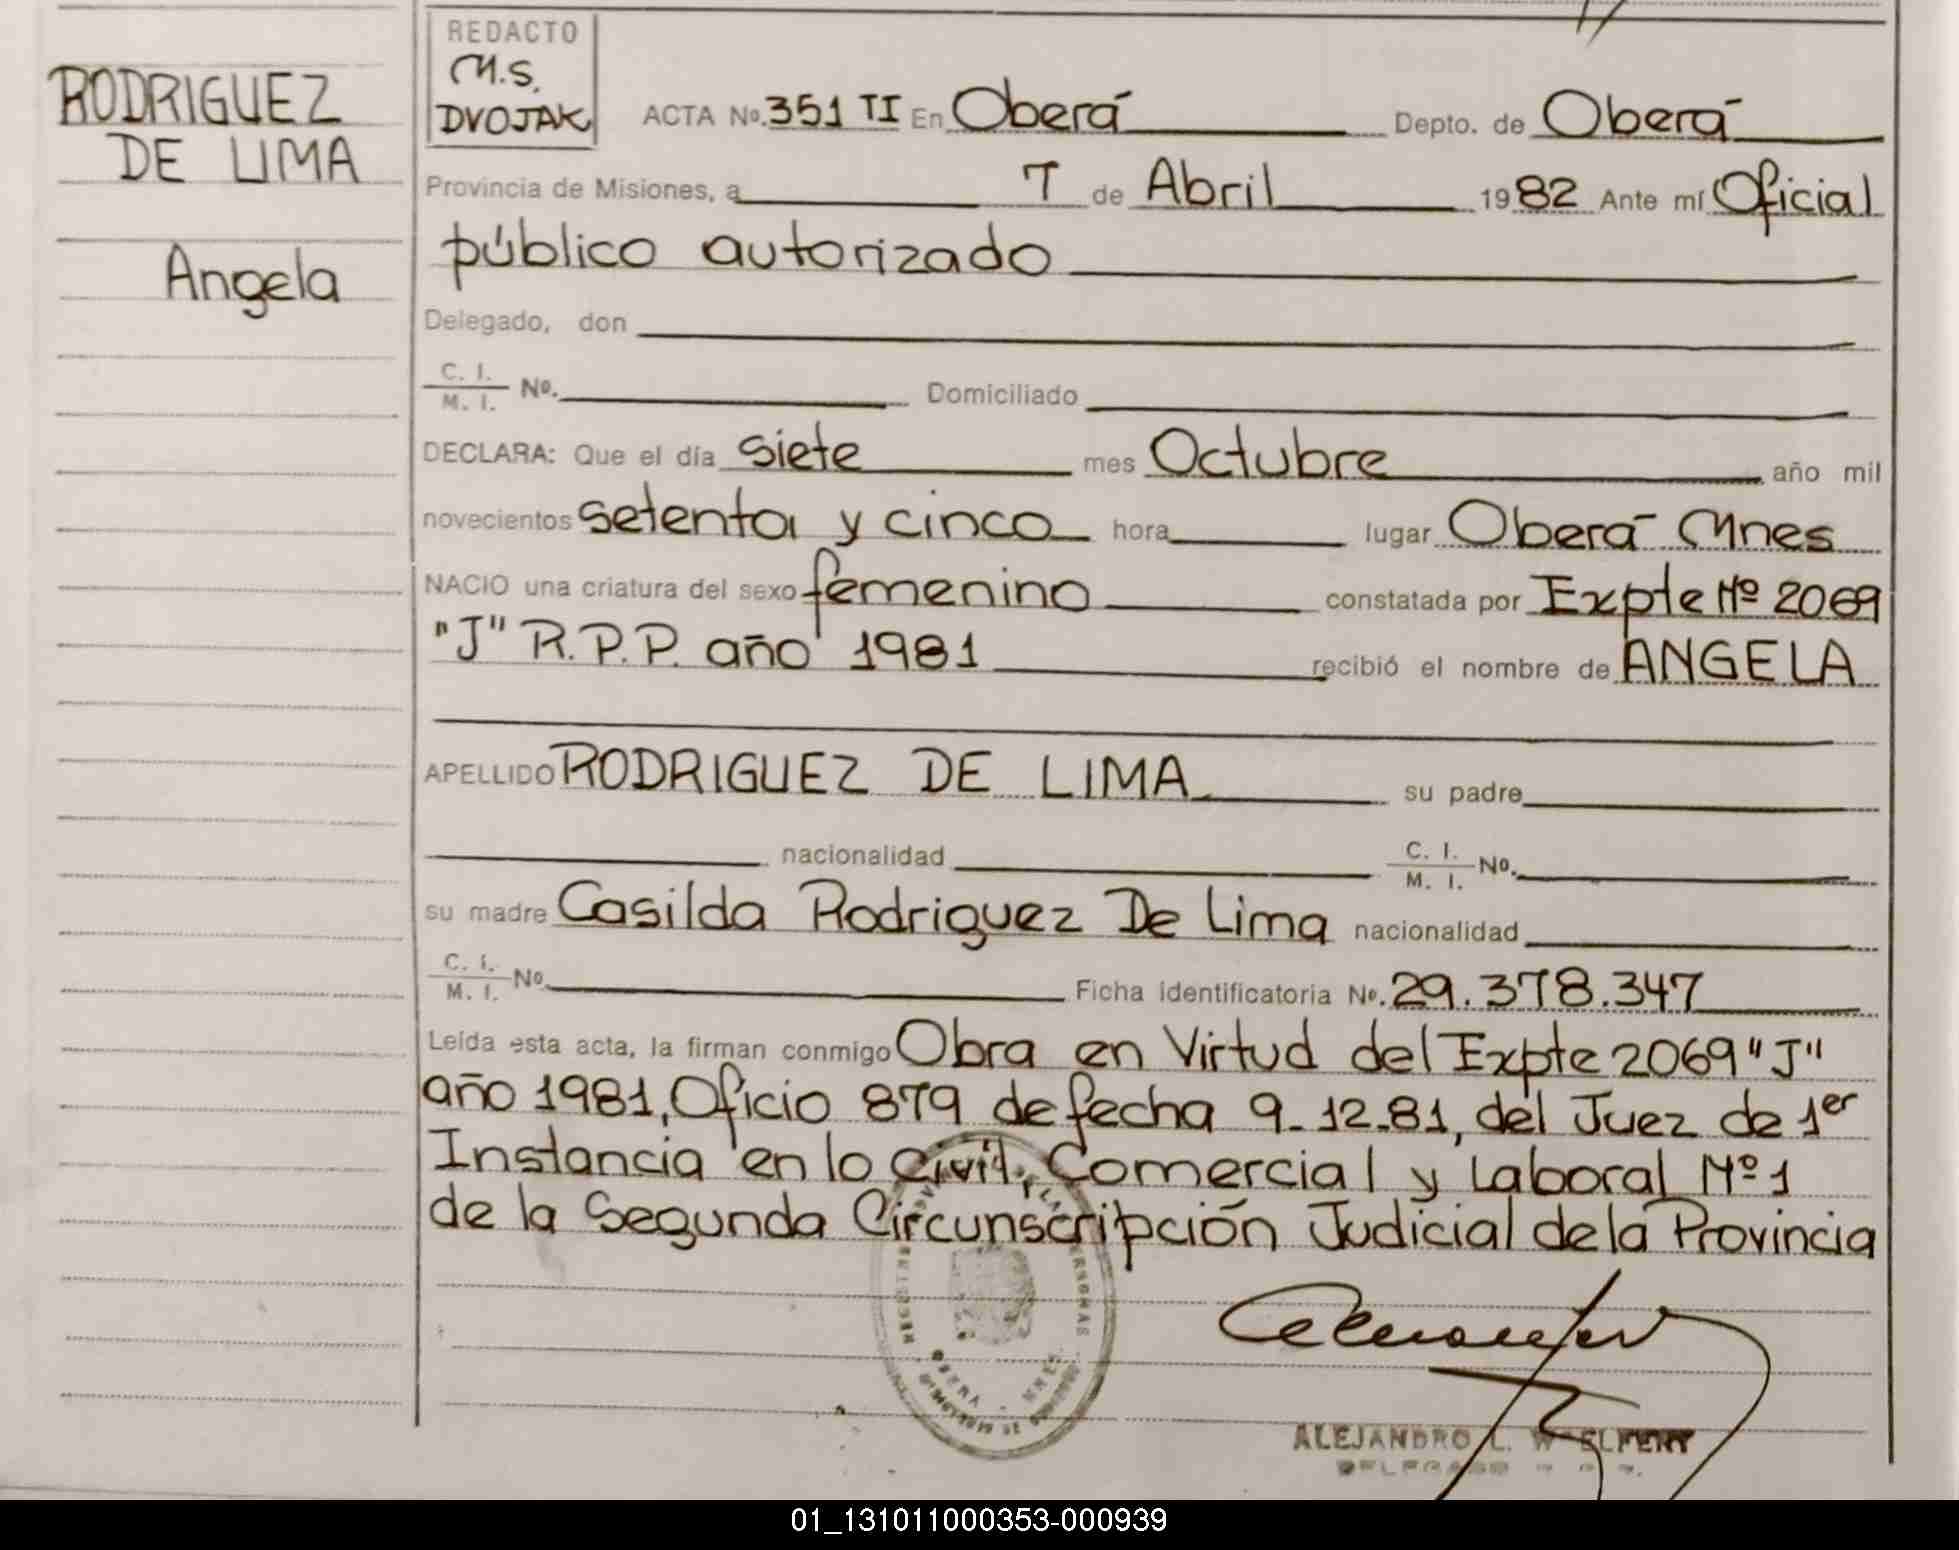 RODRIGUEZ
DE LIMA
Angela
REDACTO
M.S.
DVOJAK
ACTA No. 351 TI En Oberá Depto. de Oberá
Provincia de Misiones, a 7 de Abril 1982 Ante mí Oficial
público autorizado
Delegado, don
C. I. / M. I. No. Domiciliado
DECLARA: Que el día siete mes Octubre año mil
novecientos setenta y cinco hora lugar Oberá Mnes
NACIO una criatura del sexo femenino constatada por Expte Nº 2069
"J" R.P.P. año 1981 recibió el nombre de ANGELA
APELLIDO RODRIGUEZ DE LIMA su padre
nacionalidad C. I. / M. I. No.
su madre Casilda Rodriguez De Lima nacionalidad
C. I. / M. I. No. Ficha identificatoria No. 29.378.347
Leída esta acta, la firman conmigo Obra en Virtud del Expte 2069 "J"
año 1981, Oficio 879 de fecha 9-12-81, del Juez de 1er
Instancia en lo Civil, Comercial y Laboral Nº 1
de la Segunda Circunscripción Judicial de la Provincia
ALEJANDRO L.
01_131011000353-000939